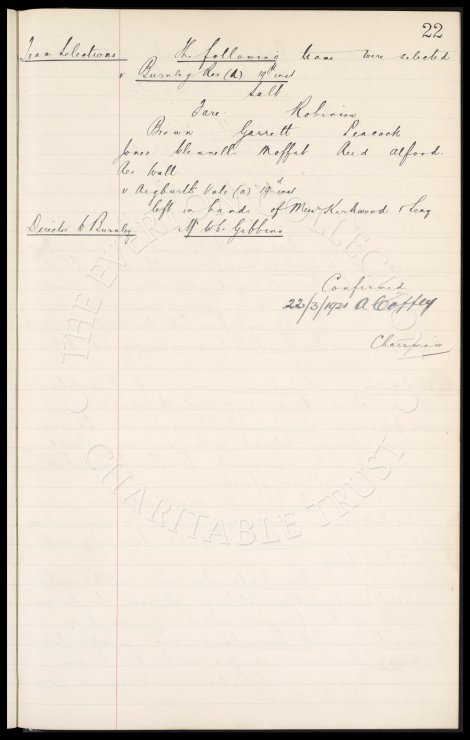 22
Team Selections The following team were selected
v Burnley Res (A) 19th inst
Salt
Fare. Robinson
Brown Garrett Peacock
Jones Blennell. Moffat Reid Alford.
Res Wall
v Aigburth Vale (a) 19th inst
left in hands of Messrs Kirkwood &
Director to Burnley Mr W.C. Gibbins
Confirmed
22/3/1921 A Coffey
Chairman
THE EVERTON COLLECTION
CHARITABLE TRUST